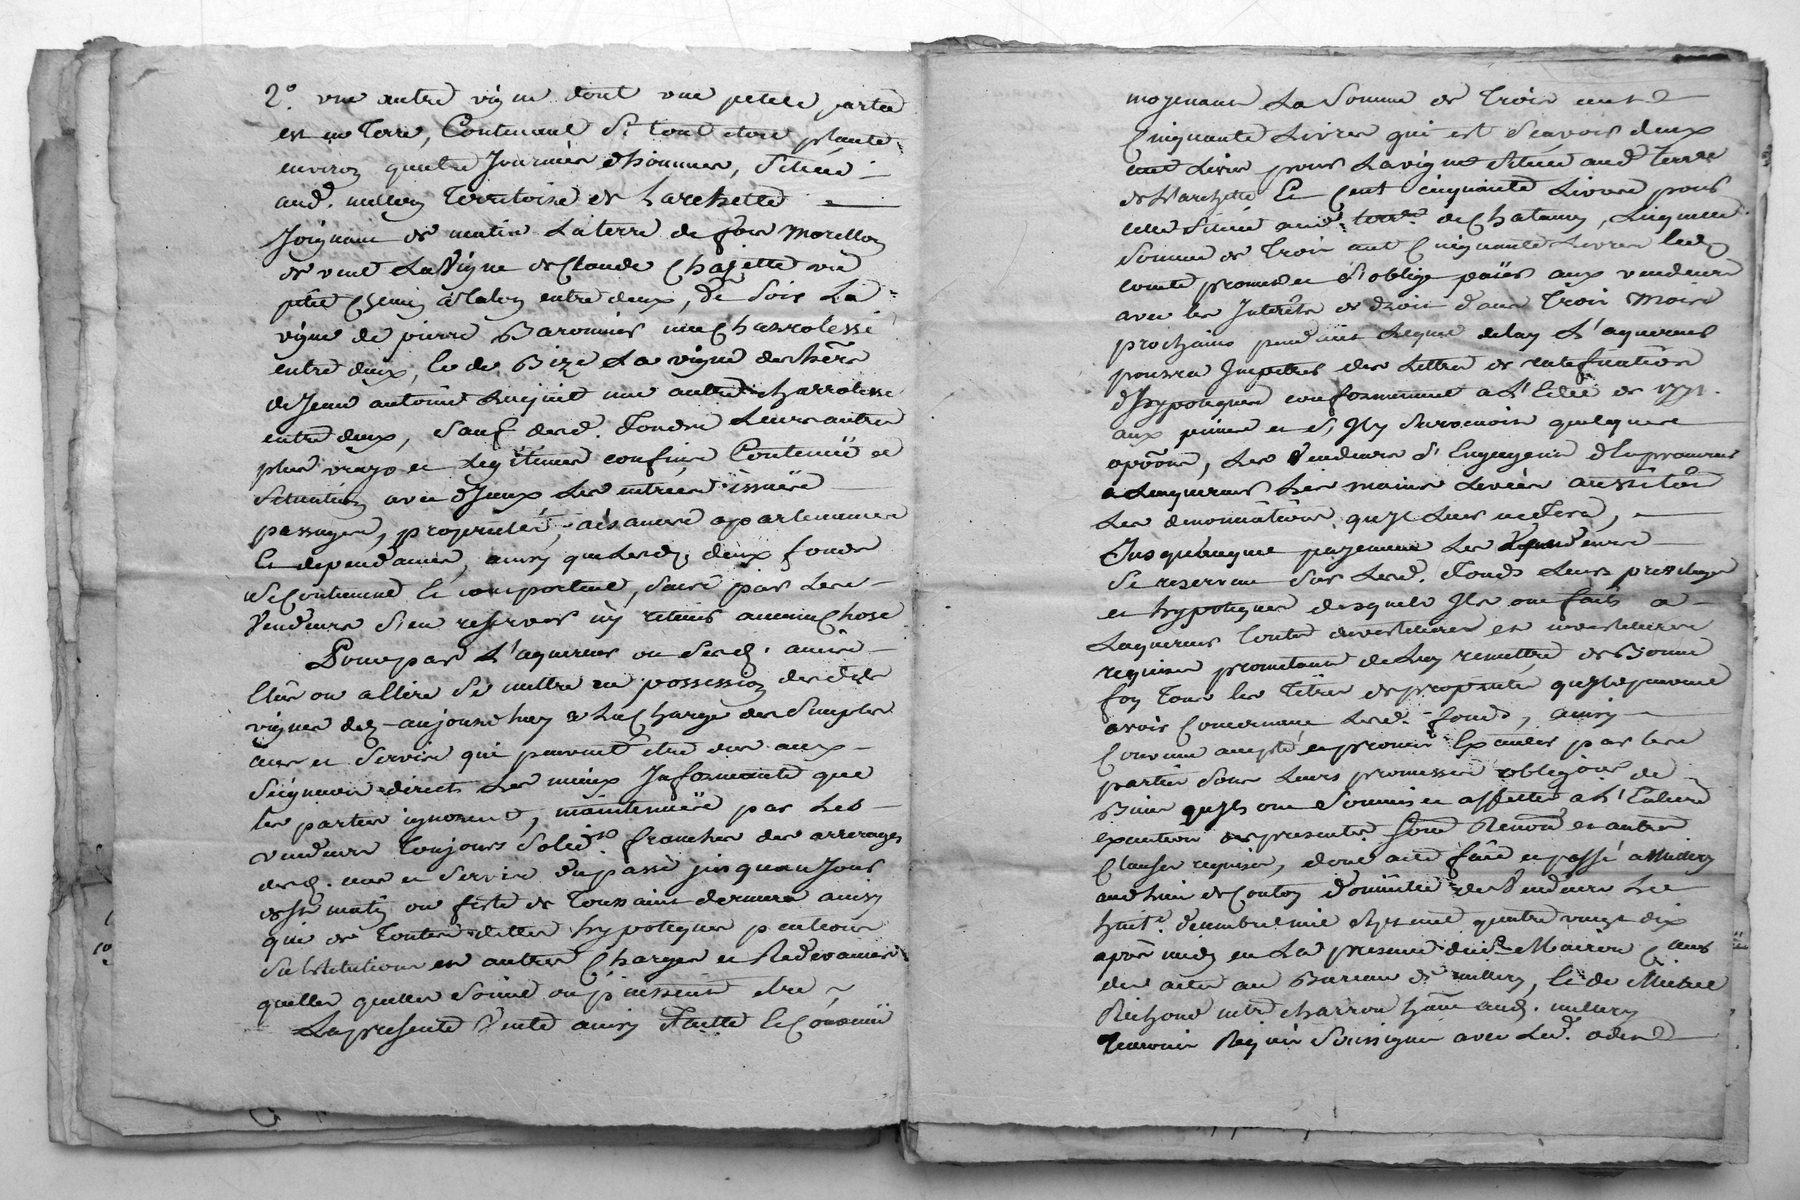 2°. une autre vigne dont une petite partie
est en Terre, Contenant Si tout etoit planté
environ quatre Journées d'hommes, Située
aud. millery Territoire de harchette
Joignant de matin La terre de morellon
de vent La Vigne de Claude Chazette un
petit Chemin entre deux, de Soir La
vigne de pierre Baronnier une Charrolesse
entre deux, et de Bize La vigne des hers
de Jean antoine une autre charrolesse
entre deux, Sauf desd. fonds Leurs autres
plus vrays et Legitimes confins Contenüe et
Situation avec d'Iceux Les entrées issües
passages, proprietés, aisances appartenances
Et dependances, ainsy que Lesd. deux fonds
Se Contiennent Et comportent, Sans par Les
Vendeurs S'en reserver ny retenir aucune Chose
Pour par L'aquereur ou Sesd. amis
Elûs ou a Elire Se mettre en possession desdites
vignes dez aujourd'huy a La Charge des Simples
cens et Servis qui peuvent etre dus aux
Seigneurs directs Les mieux Informants que
les parties ignorent, maintenües par Les
vendeurs Toujours franches des arrerages
desd. cens et Servis du passé jusqu'au Jour
de St martin ou fete de Toussaint derniere ainsy
que de Toutes dettes hypoteques pensions
Substitutions et autres Charges et Redevances
quelles quelles Soient ou puissent etre
La presente Vente ainsy faitte Et Convenüe
moyenant La Somme de Trois cent
Cinquante Livres qui est Scavoir deux
cent Livres pour La vigne Située aud. Terre
de harchette Et Cent Cinquante Livres pour
celle Située aud. terre. de Chatanay, Laquelle
Somme de Trois cent Cinquante Livres led.
comte promet et S'oblige païer aux vendeurs
avec les Interêts de droit dans Trois Mois
prochains pendant Lequel delay L'aquereur
pourra Impetrer des Lettres de ratification
d'hypoteques conformement a L'Edit de 1771.
aux peines et S'Il y Survenoit quelques
opôons, Les Vendeurs S'Engagent d'En procurer
a Laquereur Les mains Levées aussitôt
Les denonciations qu'Il Leur en Fera,
Jusqu'auquel payement Les Vendeurs
Se reservent Sur Lesd. fonds Leurs privileges
et hypoteques desquels Ils ont faits a
Laquereur Toutes devestitures et investitures
requises promettant de Luy remettre de Bonne
foy Tous les Titres de proprieté qu'Ils peuvent
avoir Concernant Lesd. fonds, ainsy
Convenu accepté et promis Executer par Les
parties Sous Leurs promesses obligaons de
Biens qu'Ils ont Soumis et affectés a L'Entiere
execution des presentes Sous Renon et autres
Clauses requises, dont acte fait et passé a Millery
au lieu de Coulon domicile des Vendeurs Le
huit decembre mil Sept cent quatre vingt dix
après midy en La presence de
des actes au Bureau de millery, Et de Michel
Richond mtre charron hant aud. millery
Temoins Requis Soussignés avec Led.